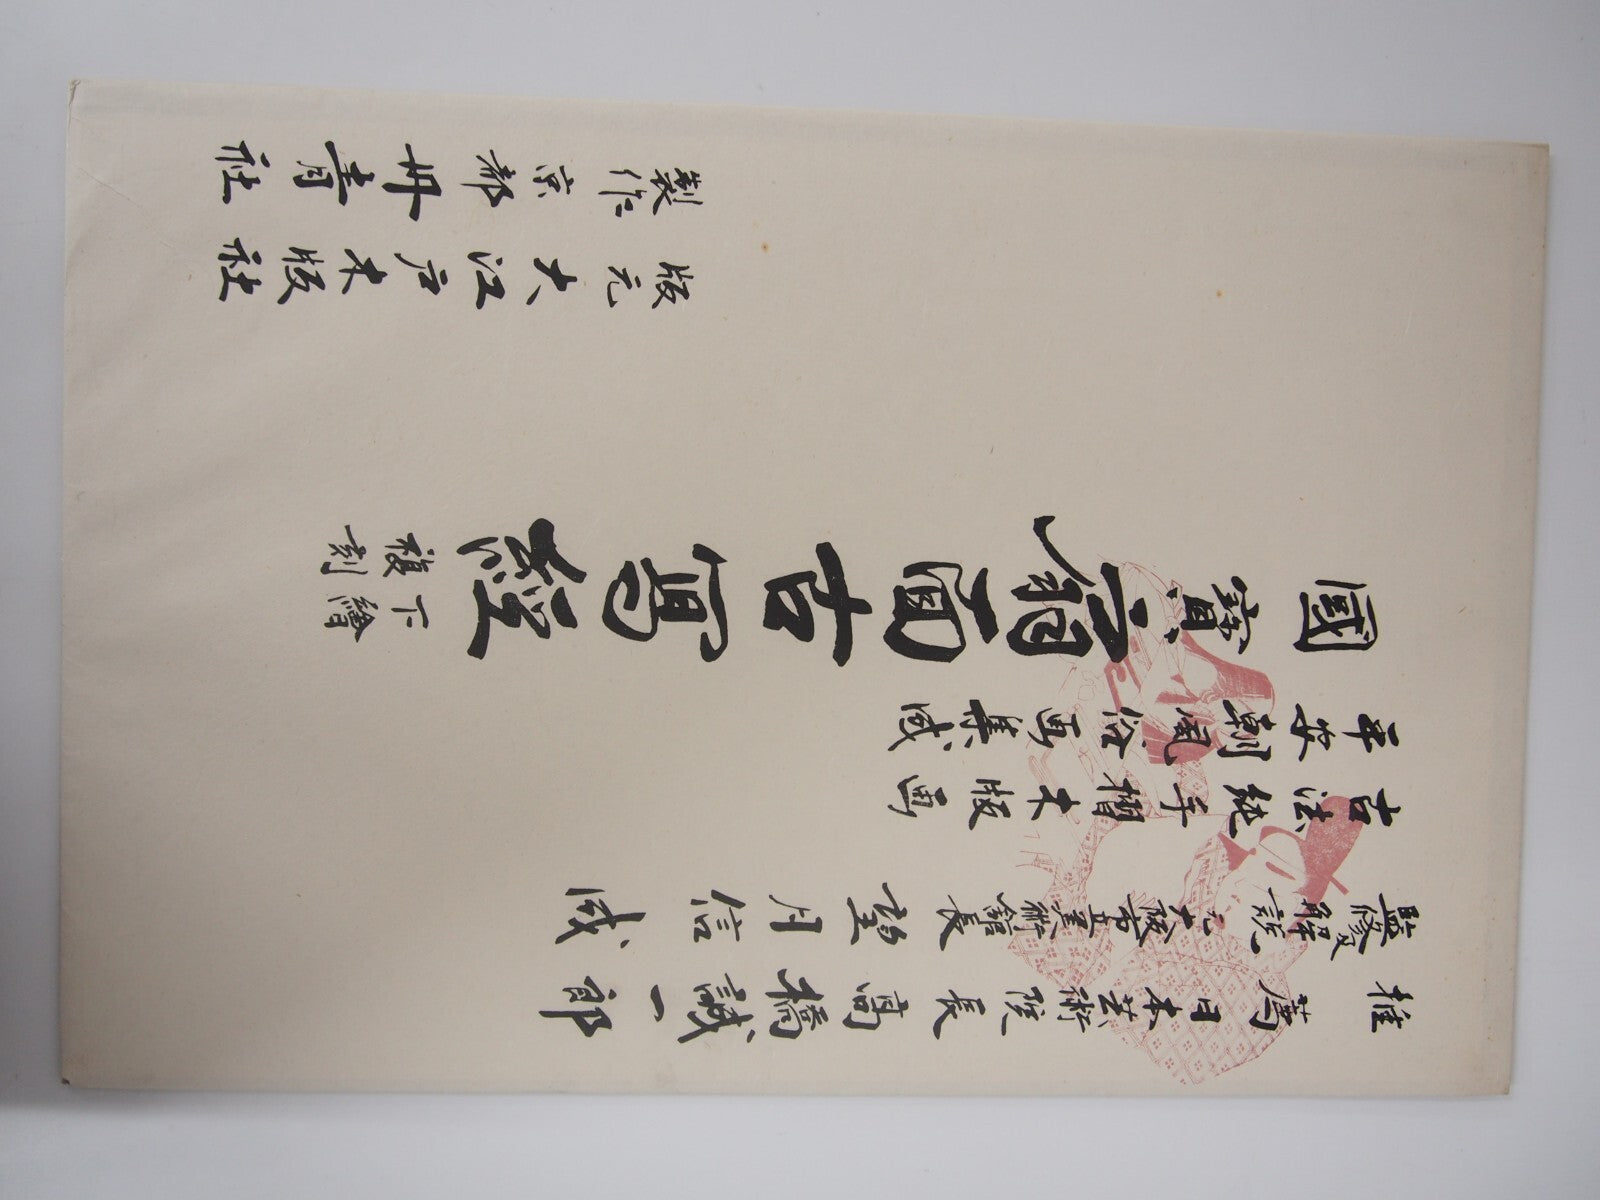 推薦 日本芸術院長 高橋誠一郎
監修及解説 元大阪市立美術館長 望月信成
古法純手摺木版画
平安朝風俗画集成
國寶 扇面古寫經 下繪複刻
版元 大江戸木版社
製作 京都 丹青社